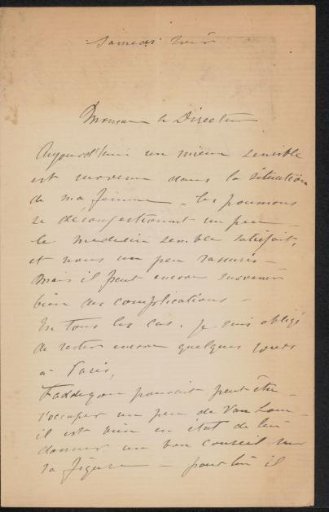 Samedi
Monsieur le Directeur
Aujourd'hui un mieux sensible
est survenu dans la situation
de ma femme - les poumons
se décongestionnent un peu -
le medecin semble satisfait,
et nous un peu rassurés -
mais il peut encore survenir
bien des complications -
En tous les cas, je suis obligé
de rester encore quelques jours
à Paris,
pourrait peut être
s'occuper un peu de Van
il est bien en état de lui
donner un bon conseil sur
sa figure - pour lui il